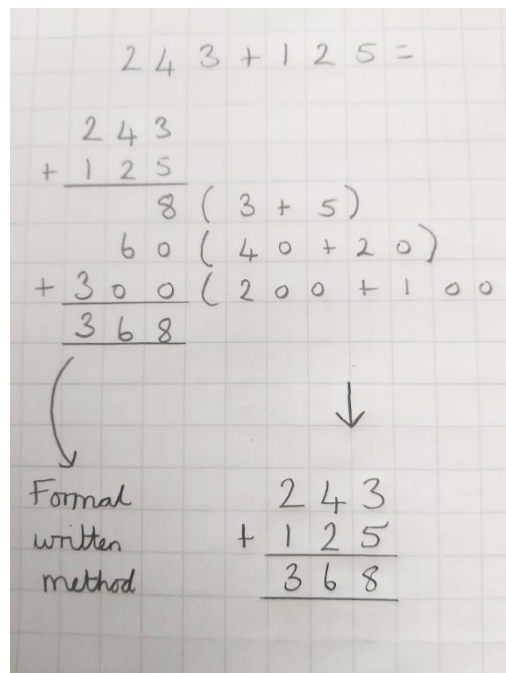 243+125=
243
+125
8 (3+5)
60 (40+20)
+300 (200+100
368
Formal
written
method
243
+125
368